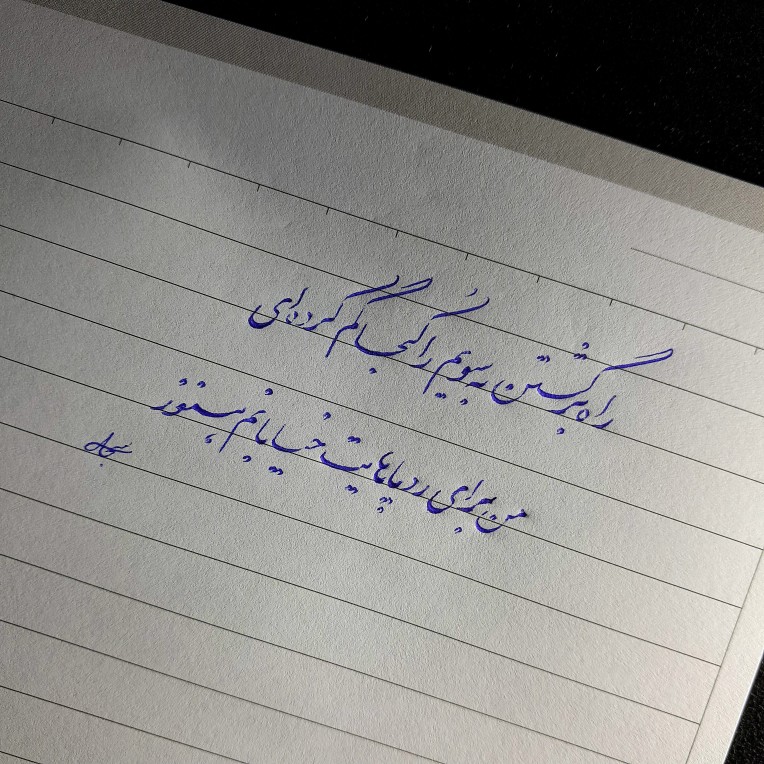 راه برگشتن به سویم را کجا گم کرده‌ای
من برای ردپاهایت خیابانم هنوز